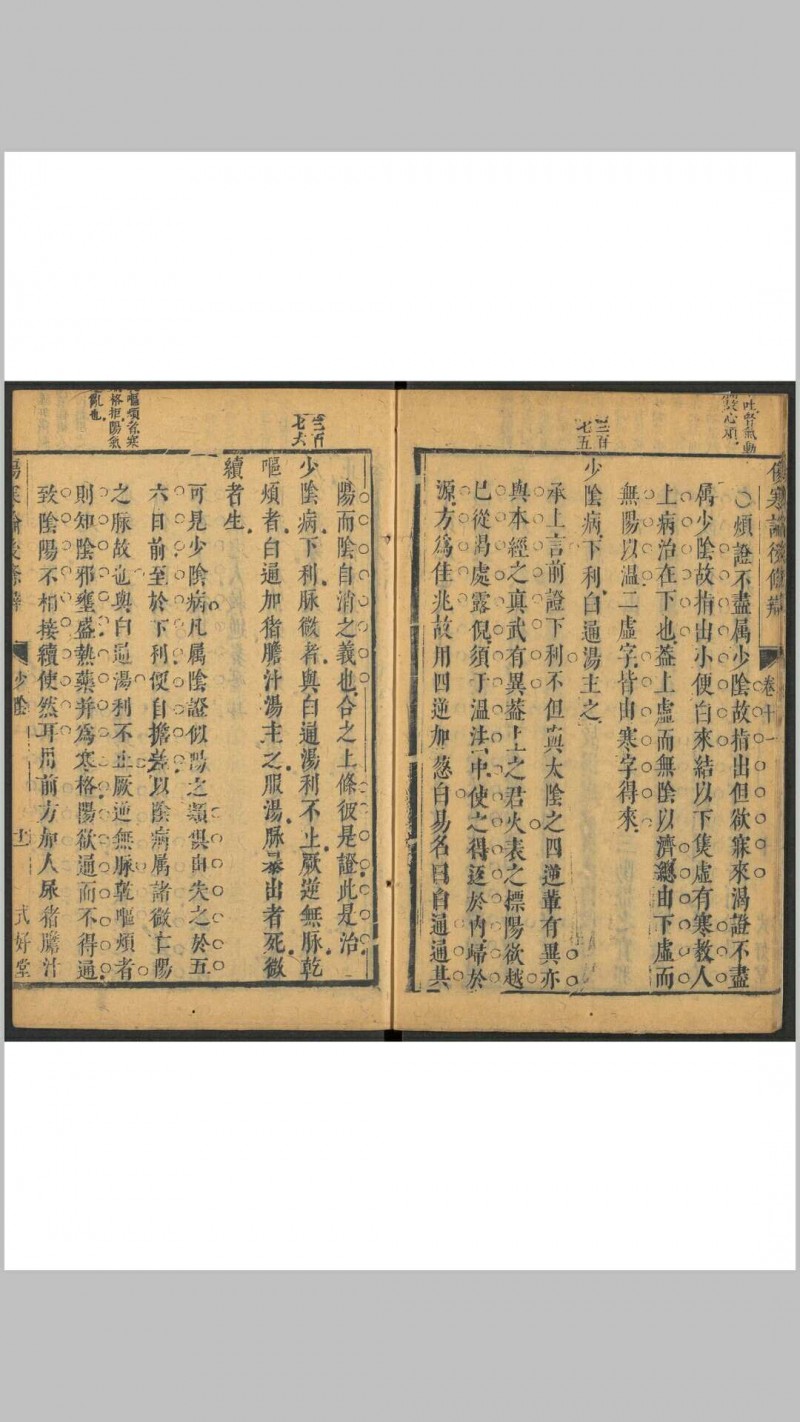 傷寒論後條辨
卷十一
吐腎氣動
心煩
○煩證不盡属少陰故指出但欲寐來渴證不盡
属少陰故指出小便白來結以下焦虛有寒教人
上病治在下也葢上虛而無陰以濟總由下虛而
無陽以温二虛字皆由寒字得來
三百七五
少陰病下利白通湯主之
承上言前證下利不但與太陰之四逆輩有異亦
與本經之真武有異葢上之君火表之標陽欲越
已從渴處露倪須于温法中使之得返於內歸於
源方爲佳兆故用四逆加葱白易名曰白通通其
陽而陰自消之義也合之上條彼是證此是治
三百七六
少陰病下利脉微者與白通湯利不止厥逆無脉乾
嘔煩者白通加猪膽汁湯主之服湯脉暴出者死微
續者生
嘔煩
格拒陽氣
亂也
可見少陰病凡属陰證似陽之類俱由失之於五
六日前至於下利便自擔差以陰病属諸微亡陽
之脉故也與白通湯利不止厥逆無脉乾嘔煩者
則知陰邪壅盛熱藥并爲寒格陽欲通而不得通
致陰陽不相接續使然耳用前方加人尿猪膽汁
少陰
十二
式好堂